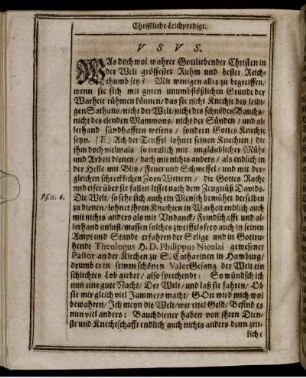 Christliche Leichpredigt.
V S V S.
WAs doch wol wahrer Gottliebender Christen in
der Welt grössester Ruhm und bester Reich-
thumb sey? Mit wenigen alles zu begreiffen,
wenn sie sich mit gutem unumbstößlichen Grunde der
Warheit rühmen können/ das sie nicht Knechte des leidi-
gen Sathans/ nicht der Welt/ nicht des schnöden Bauchs/
nicht des elenden Mammons/ nicht der Sünden/ und al-
lerhand sündhafften wesens/ sondern Gottes Knechte
seyn. Ach der Teuffel lohnet seinen Knechten/ die
ihm doch vielmals so treulich mit unglaublicher Mühe
und Arbeit dienen/ doch mit nichts anders/ als endlich in
der Helle mit Blitz/ Feuer und Schweffel/ und mit der-
gleichen schrecklichen Zorn Wettern/ die Gottes Rache
und eifer über sie fallen lesset nach dem Zeugnüß Davids.
Psl. 11. 6.
Die Welt/ so sehr sich auch ein Mensch bemühet derselben
zu dienen/ lohnet ihren Knechten in Warheit endlich auch
mit nichts anders als mit Undanck/ Feindschafft und al-
lerhand unlust/ massen solches zweiffels frey auch in seinem
Ampt und Stande erfahren der Selige und in Gott ru-
hende Theologus H. D. Philippus Nicolai gewesener
Pastor an der Kirchen zu S. Catharinen in Hamburg/
drumb er in seinem schönen Valet Gesang der Welt ein
schlechtes Lob giebet/ also sprechende: So wündsch ich
nun eine gute Nacht/ Der Welt/ und laß sie fahren/ Ob
sie mir gleich viel Jammers macht/ GOtt wird mich wol
bewahren/ Ich meyn die Welt/ war eitel Geld/ Befind es
nun viel anders: Bauchdiener haben von ihren Dien-
ste und Knechtschafft endlich auch nichts anders denn zeit-
liche